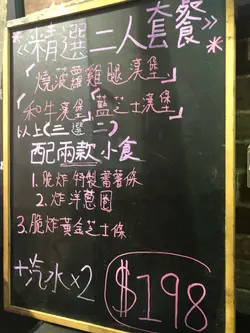 《精選二人套餐》
「燒菠蘿雞腿漢堡」
「和牛漢堡」「藍芝士漢堡」
以上(三選二)
配兩款小食
1. 脆炸特製蕃薯條
2. 炸洋蔥圈
3. 脆炸黃金芝士條
+汽水×2
$198